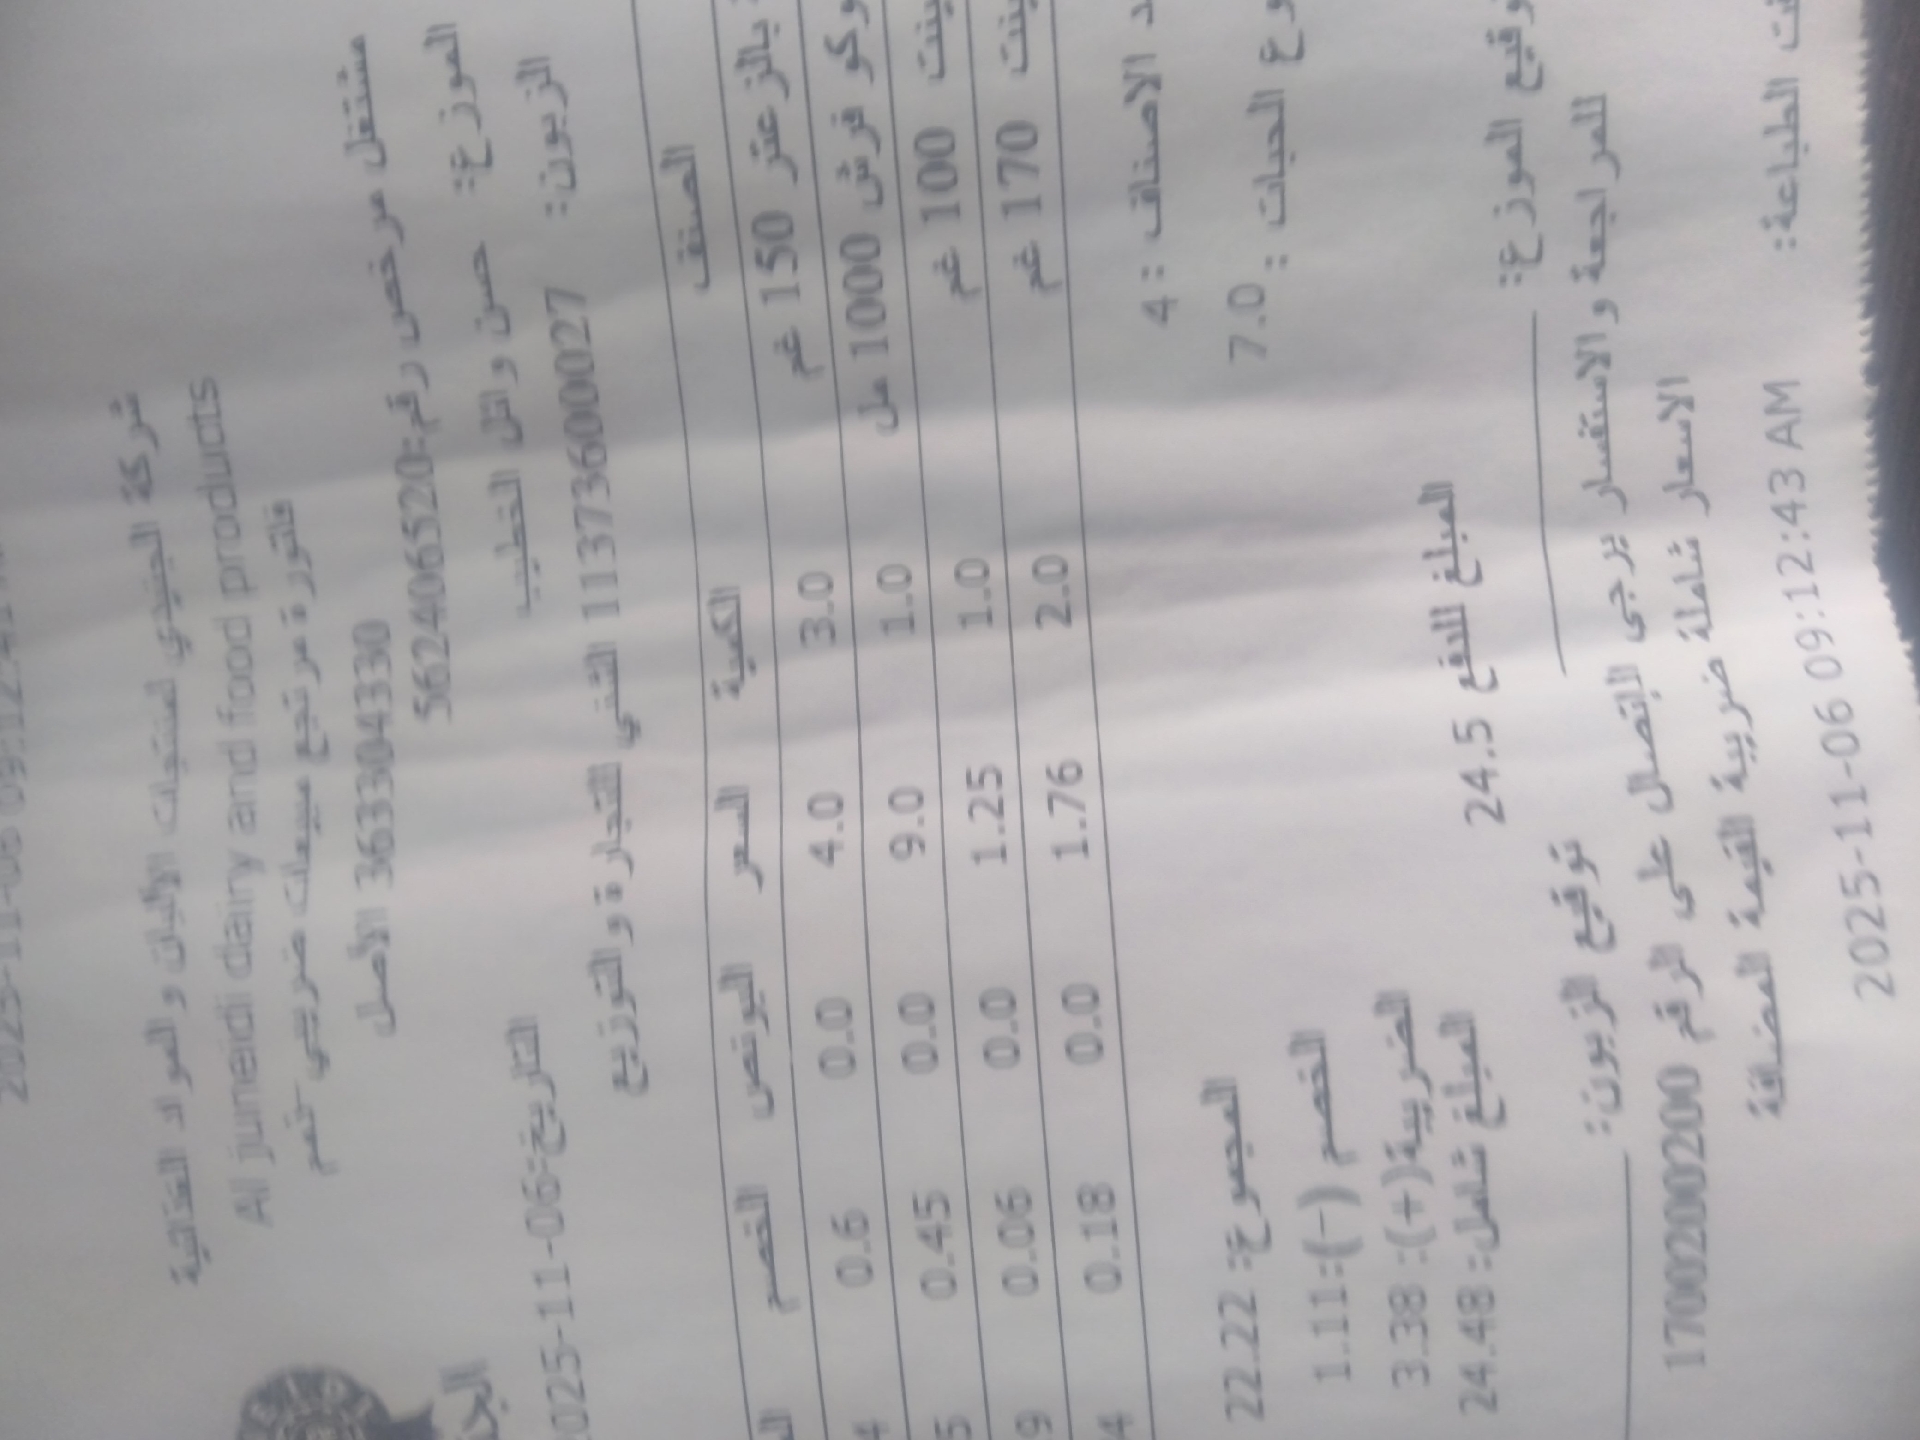 شركة الجنيدي لمنتجات الألبان و المواد الغذائية
Al juneidi dairy and food products
فاتورة مرتجع مبيعات ضريبي خصم
363304330 الأصل
مشتغل مرخص رقم:562406520
الموزع: حسن وائل الخطيب
التاريخ:025-11-06
الزبون: 1137360000027 التجارة و التوزيع
الصنف الكمية السعر البونص الخصم
بالزعتر 150 غم 3.0 4.0 0.0 0.6
فرش 1000 مل 1.0 9.0 0.0 0.45
100 غم 1.0 1.25 0.0 0.06
170 غم 2.0 1.76 0.0 0.18
الاصناف : 4
المجموع: 22.22
الحبات : 7.0
الخصم (-):1.11
الضريبة(+): 3.38
المبلغ شامل: 24.48
المبلغ للدفع 24.5
توقيع الموزع:
توقيع الزبون:
للمراجعة والاستفسار يرجى الإتصال على الرقم 1700200200
الاسعار شاملة ضريبة القيمة المضافة
الطباعة: 2025-11-06 09:12:43 AM